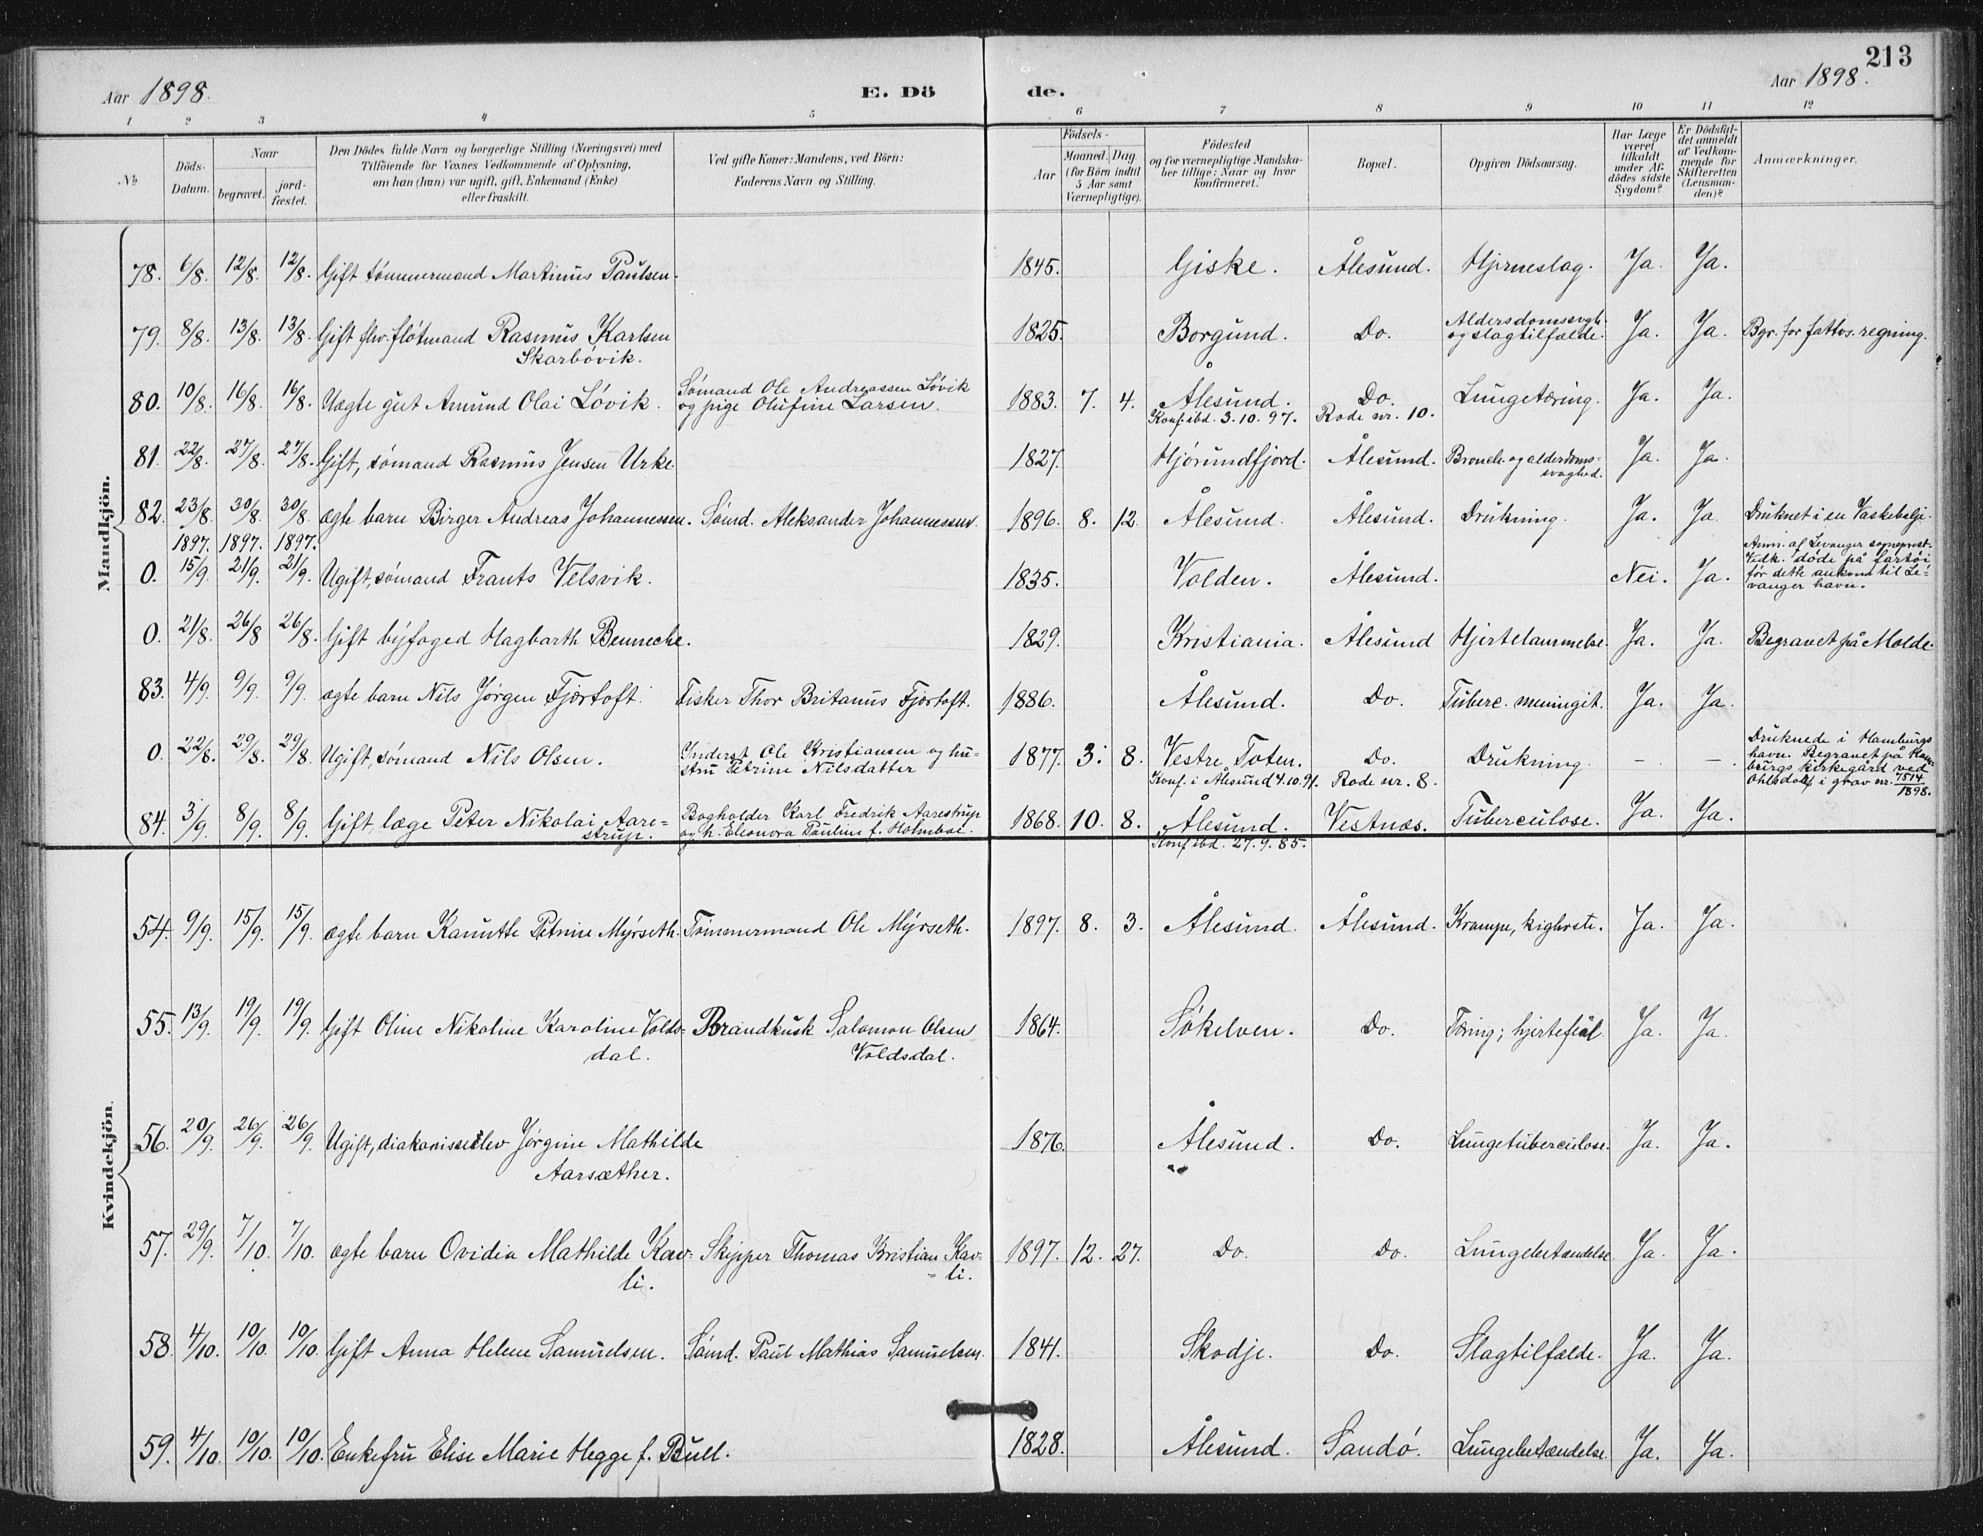 213
Aar 1898. E. Dö de. Aar 1898.
1 2 3 4 5 6 7 8 9 10 11 12
No
Döds-Datum.
Naar
begravet.
jord-fæstet.
Den Dödes fulde Navn og borgerlige Stilling (Næringsvei) med
Tilföiende for Voxnes Vedkommende af Oplysning,
om han (hun) var ugift, gift, Enkemand (Enke)
eller fraskilt.
Ved gifte Koner: Mandens, ved Börn:
Faderens Navn og Stilling.
Födsels-
Aar
Maaned. Dag
(for Börn indtil
5 Aar samt
Værnepligtige).
Födested
og for værnepligtige Mandska-
ber tillige: Naar og hvor
konfirmeret.
Bopæl.
Opgiven Dödsaarsag.
Har Læge
været
tilkaldt
under Af-
dödes sidste
Sygdom?
Er Dödsfal-
det anmeldt
af Vedkom-
mende for
Skifteretten
(Lensman-
den)?
Anmærkninger.
Mandkjön.
78. 6/8. 12/8. 12/8. Gift tømmermand Martinus Paulsen. 1845. Giske. Ålesund. Hjerneslag. Ja. Ja.
79. 8/8. 13/8. 13/8. Gift fhv. fløtmand Rasmus Karlsen 1825. Borgund. Do. Aldersdomssvgh. Ja. Ja. Bgr. for fattvs. regning.
Skarbøvik. og slagtilfælde.
80. 10/8. 16/8. 16/8. Uægte gut Amund Olai Løvik. Sømand Ole Andreassen Løvik 1883. 7. 4. Ålesund. Do. Lungetæring. Ja. Ja.
og pige Olufine Larsen. Konf. ibd. 3.10.97. Rode nr. 10.
81. 22/8. 27/8. 27/8. Gift, sømand Rasmus Jensen Urke. 1827. Hjørundfjord. Ålesund. Bronch. og alderdoms- Ja. Ja.
svaghed.
82. 23/8. 30/8. 30/8. ægte barn Birger Andreas Johannessen. Sømd. Aleksander Johannessen. 1896. 8. 12. Ålesund. Ålesund. Drukning. Ja. Ja. Druknet i en Vaskebalje.
1897. 1897. 1897.
0. 15/9. 21/9. 21/9. Ugift, sømand Frants Velsvik. 1835. Volden. Ålesund. Nei. Ja. Anm. af Levanger sogneprst.
Vedk. døde på fartøi
før dette ankom til Le-
vanger havn.
0. 21/8. 26/8. 26/8. Gift byfoged Hagbarth Bennecke. 1829. Kristiania. Ålesund Hjertelammelse. Ja. Ja. Begravet på Molde.
83. 4/9. 9/9. 9/9. ægte barn Nils Jørgen Fjørtoft. Fisker Thor Britanus Fjørtoft. 1886. Ålesund. Do. Tuberc. meningit. Ja. Ja.
0. 22/8. 29/8. 29/8. Ugift, sømand Nils Olsen. Inderst Ole Kristiansen og hu- 1877. 3. 8. Vestre Toten. Do. Drukning. – – Druknede i Hamburgs
stru Petrine Nilsdatter Konf. i Ålesund 4.10.91. Rode nr. 8. havn. Begravet på Ham-
burgs kirkegård ved
Ohlsdorf i grav nr. 7514/1898.
84. 3/9. 8/9. 8/9. Gift, læge Peter Nikolai Aare- Bogholder Karl Fredrik Aarestrup 1868. 10. 8. Ålesund. Vestnæs. Tuberculose. Ja. Ja.
strup. og h. Eleonora Pauline f. Holmboe. Konf. ibd. 27.9.85.
Kvindekjön.
54. 9/9. 15/9. 15/9. ægte barn Kanutte Petrine Myrseth. Tømmermand Ole Myrseth. 1897. 8. 3. Ålesund. Ålesund. Krampe, kighoste. Ja. Ja.
55. 13/9. 19/9. 19/9. Gift Oline Nikoline Karoline Volds- Brandkusk Salomon Olsen 1864. Søkelven. Do. Tæring; hjertefeil. Ja. Ja.
dal. Voldsdal.
56. 20/9. 26/9. 26/9. Ugift, diakonisseelev Jørgine Mathilde 1876. Ålesund. Do. Lungetuberculose. Ja. Ja.
Aarsæther.
57. 29/9. 7/10. 7/10. ægte barn Ovidia Mathilde Kav- Skipper Thomas Kristian Kav- 1897. 12. 27. Do. Do. Lungebetændelse. Ja. Ja.
li. li.
58. 4/10. 10/10. 10/10. Gift Anna Helene Samuelsen. Sømd. Paul Mathias Samuelsen. 1841. Skodje. Do. Slagtilfælde. Ja. Ja.
59. 4/10. 10/10. 10/10. Enkefru Elise Marie Hegge f. Bull. 1828. Ålesund. Sandø. Lungebetændelse. Ja. Ja.